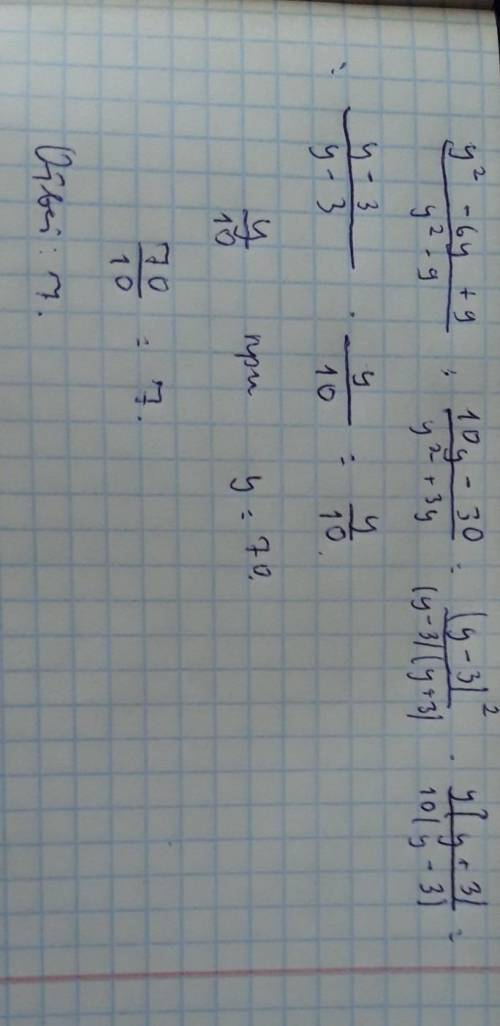 y² - 6y + 9 / y² - 9 : 10y - 30 / y² + 3y = (y - 3)² / (y - 3)(y + 3) · y(y + 3) / 10(y - 3) =
= y - 3 / y - 3 · y / 10 = y / 10.
y / 10 при y = 70.
70 / 10 = 7.
Ответ: 7.